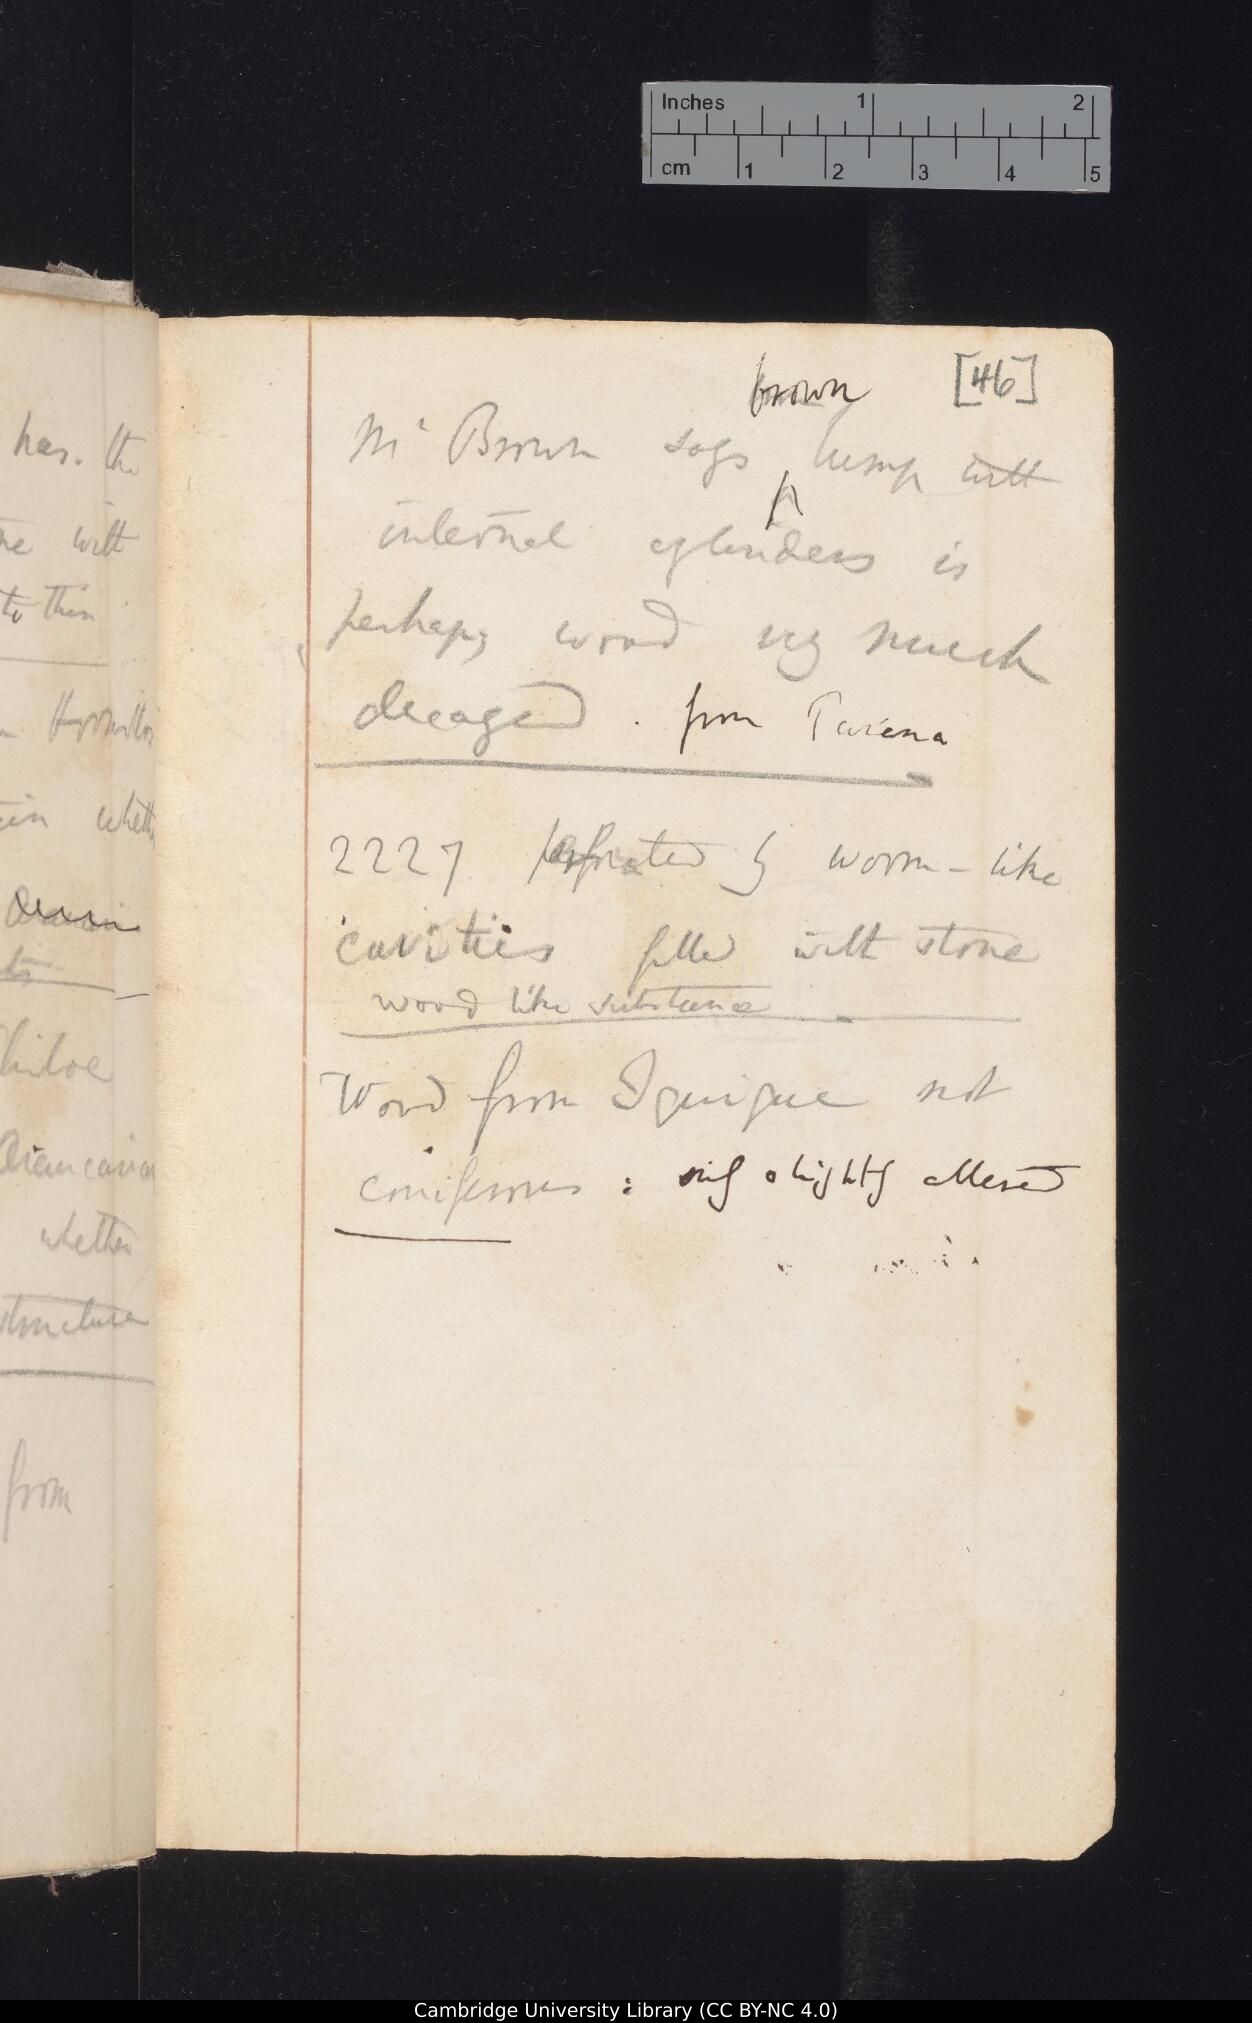 Inches 1 2
cm 1 2 3 4 5
has. the
with
to this
whether
Chiloe
whether
structure
from
[46]
brown
Mr Brown says ^ lump with
internal cylinders is
perhaps wood very much
decayed . from
2227 Perforated by worm-like
cavities filled with stone
wood like substance
Wood from Iquique not
coniferous : only slightly altered
Cambridge University Library (CC BY-NC 4.0)